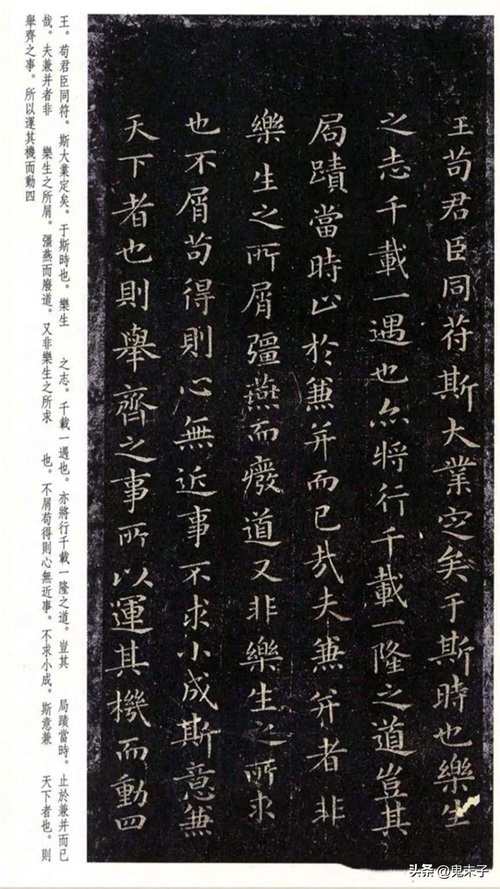 王苟君臣同苻斯大業定矣于斯時也樂生
之志千載一遇也亦將行千載一隆之道豈其
局蹟當時止於兼并而已哉夫兼并者非
樂生之所屑彊燕而癈道又非樂生之所求
也不屑苟得則心無近事不求小成斯意兼
天下者也則舉齊之事所以運其機而動四
王。苟君臣同符。斯大業定矣。于斯時也。樂生 之志。千載一遇也。亦將行千載一隆之道。豈其 局蹟當時。止於兼并而已
哉。夫兼并者非 樂生之所屑。彊燕而廢道。又非樂生之所求 也。不屑苟得則心無近事。不求小成。斯意兼 天下者也。則
舉齊之事。所以運其機而動四
头条 @鬼末子